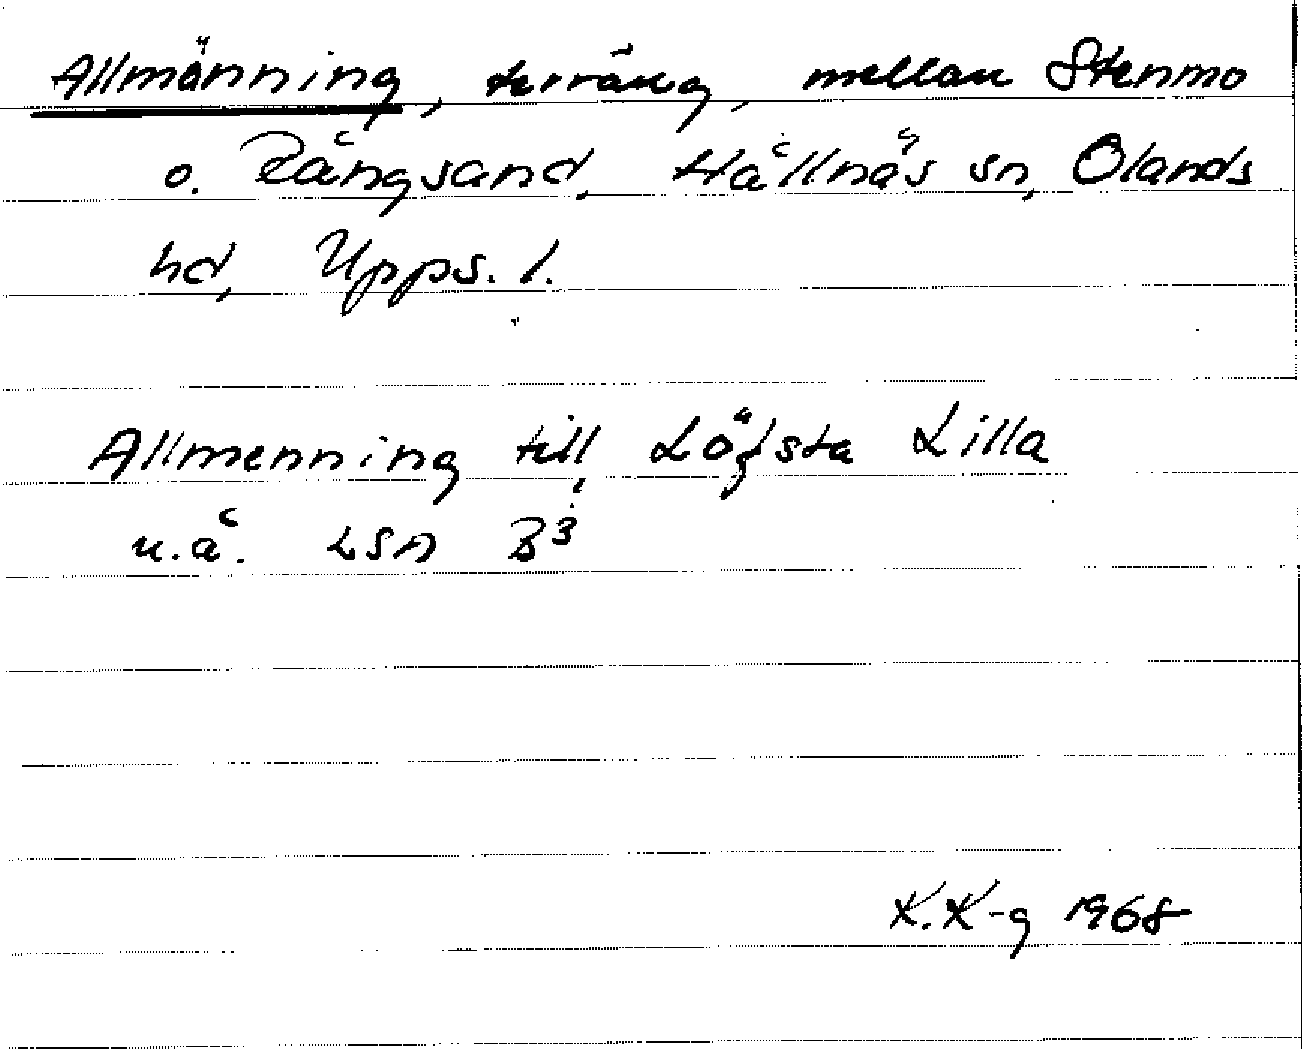 Allmänning, terräng, mellan Stenmo
o. Rångsand, Hållnäs sn, Olands
hd, Upps. l.
Allmenning till, Löfsta Lilla
u.å. LSA B3
K.K-g 1968